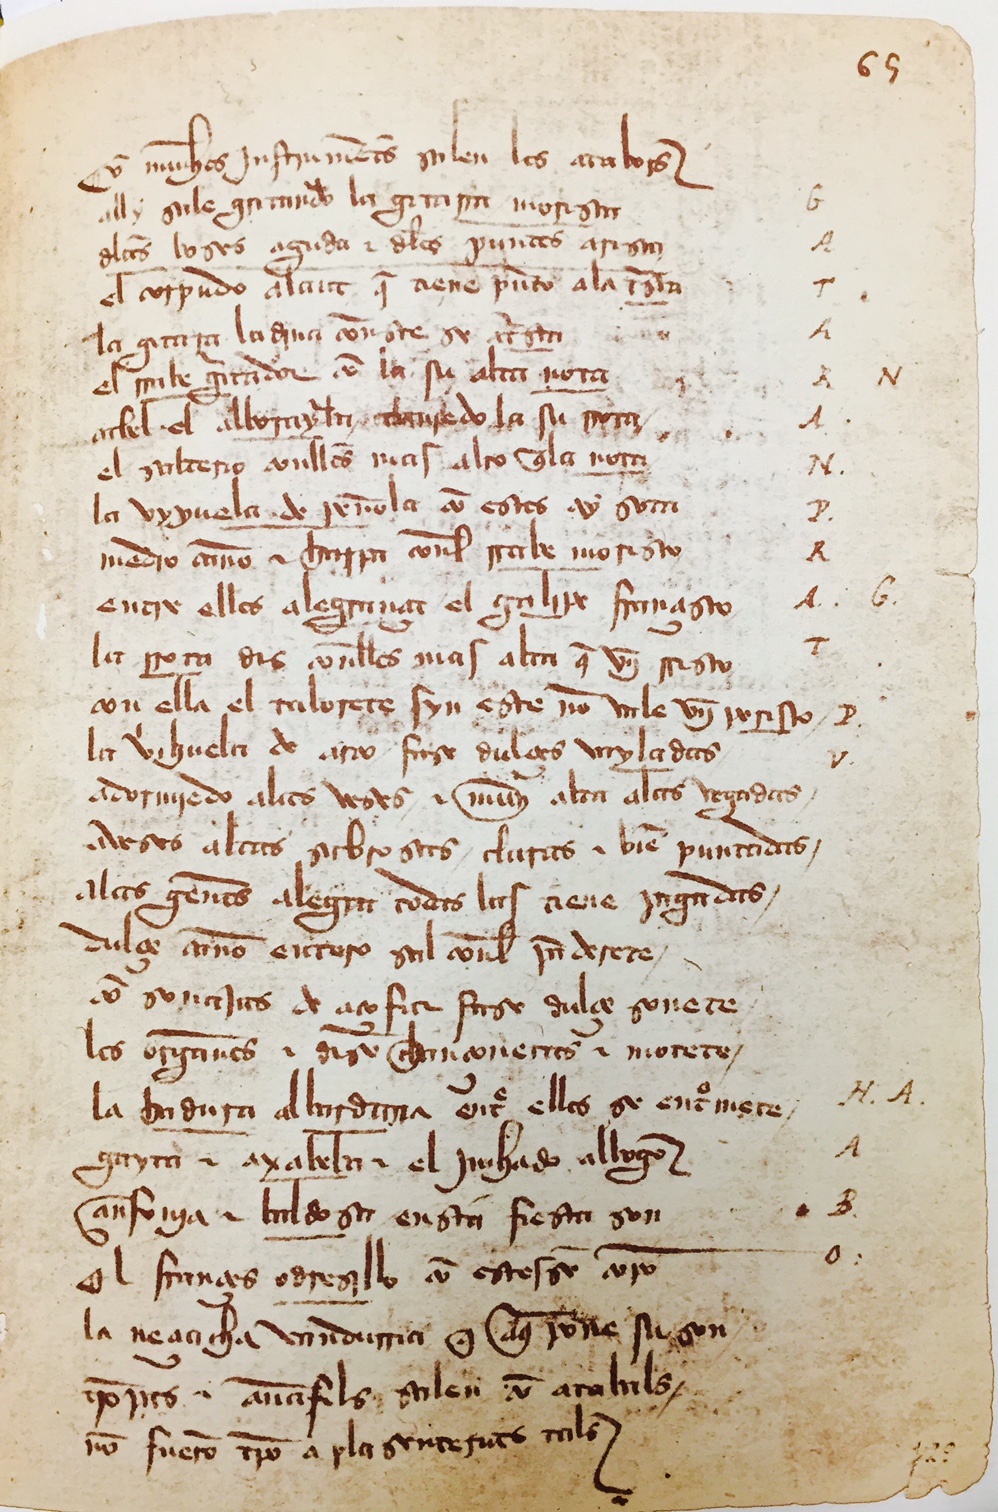 65
Cō muchos Instrumētos salen los atabores
ally sale gritando la gitarra morisca G
dlas boses aguda e dlos puntos arisca A
el corpudo alaut q̄ tiene pūto ala trisca T
la gitarra ladina con esto se A
el rrabe gritador cō la su alta nota R N
cabel el taniēdo la su rrota A.
el salterio conellos mas alto q̄ la mota N.
la vyyuela de pēnola cō estos ay sota P.
medio caño e harpa conel rrabe morisco R
entre ellos alegrança el galipe françisco A. G.
la rrota dis conellos mas alta q̄ vn rrisco T
con ella el taborete syn este nō vale vn prisco P.
la vihuela de arco fase dulçes vayladas V.
adormiendo alas veses e muy alta alas vegadas
veses altas sabrosas claras e biē puntadas
alas gentes alegra todas las tiene pagadas
dulçe caño entero sal conel pāderete
cō sonajas de açofar fase dulçe sonete
los organos e dise chançonetas e motete
la hadura albardana entre ellos se entremete H. A.
gayta e axabeba e el Inchado albogō A
çanfonja e baldosa en esta fiesta son B.
El françes odresillo cō estos se O:
la neaçicha vandurria aq̄ pone su son
e anafiles salen cō atabales
nō fuerō tpō a plasenterias tales